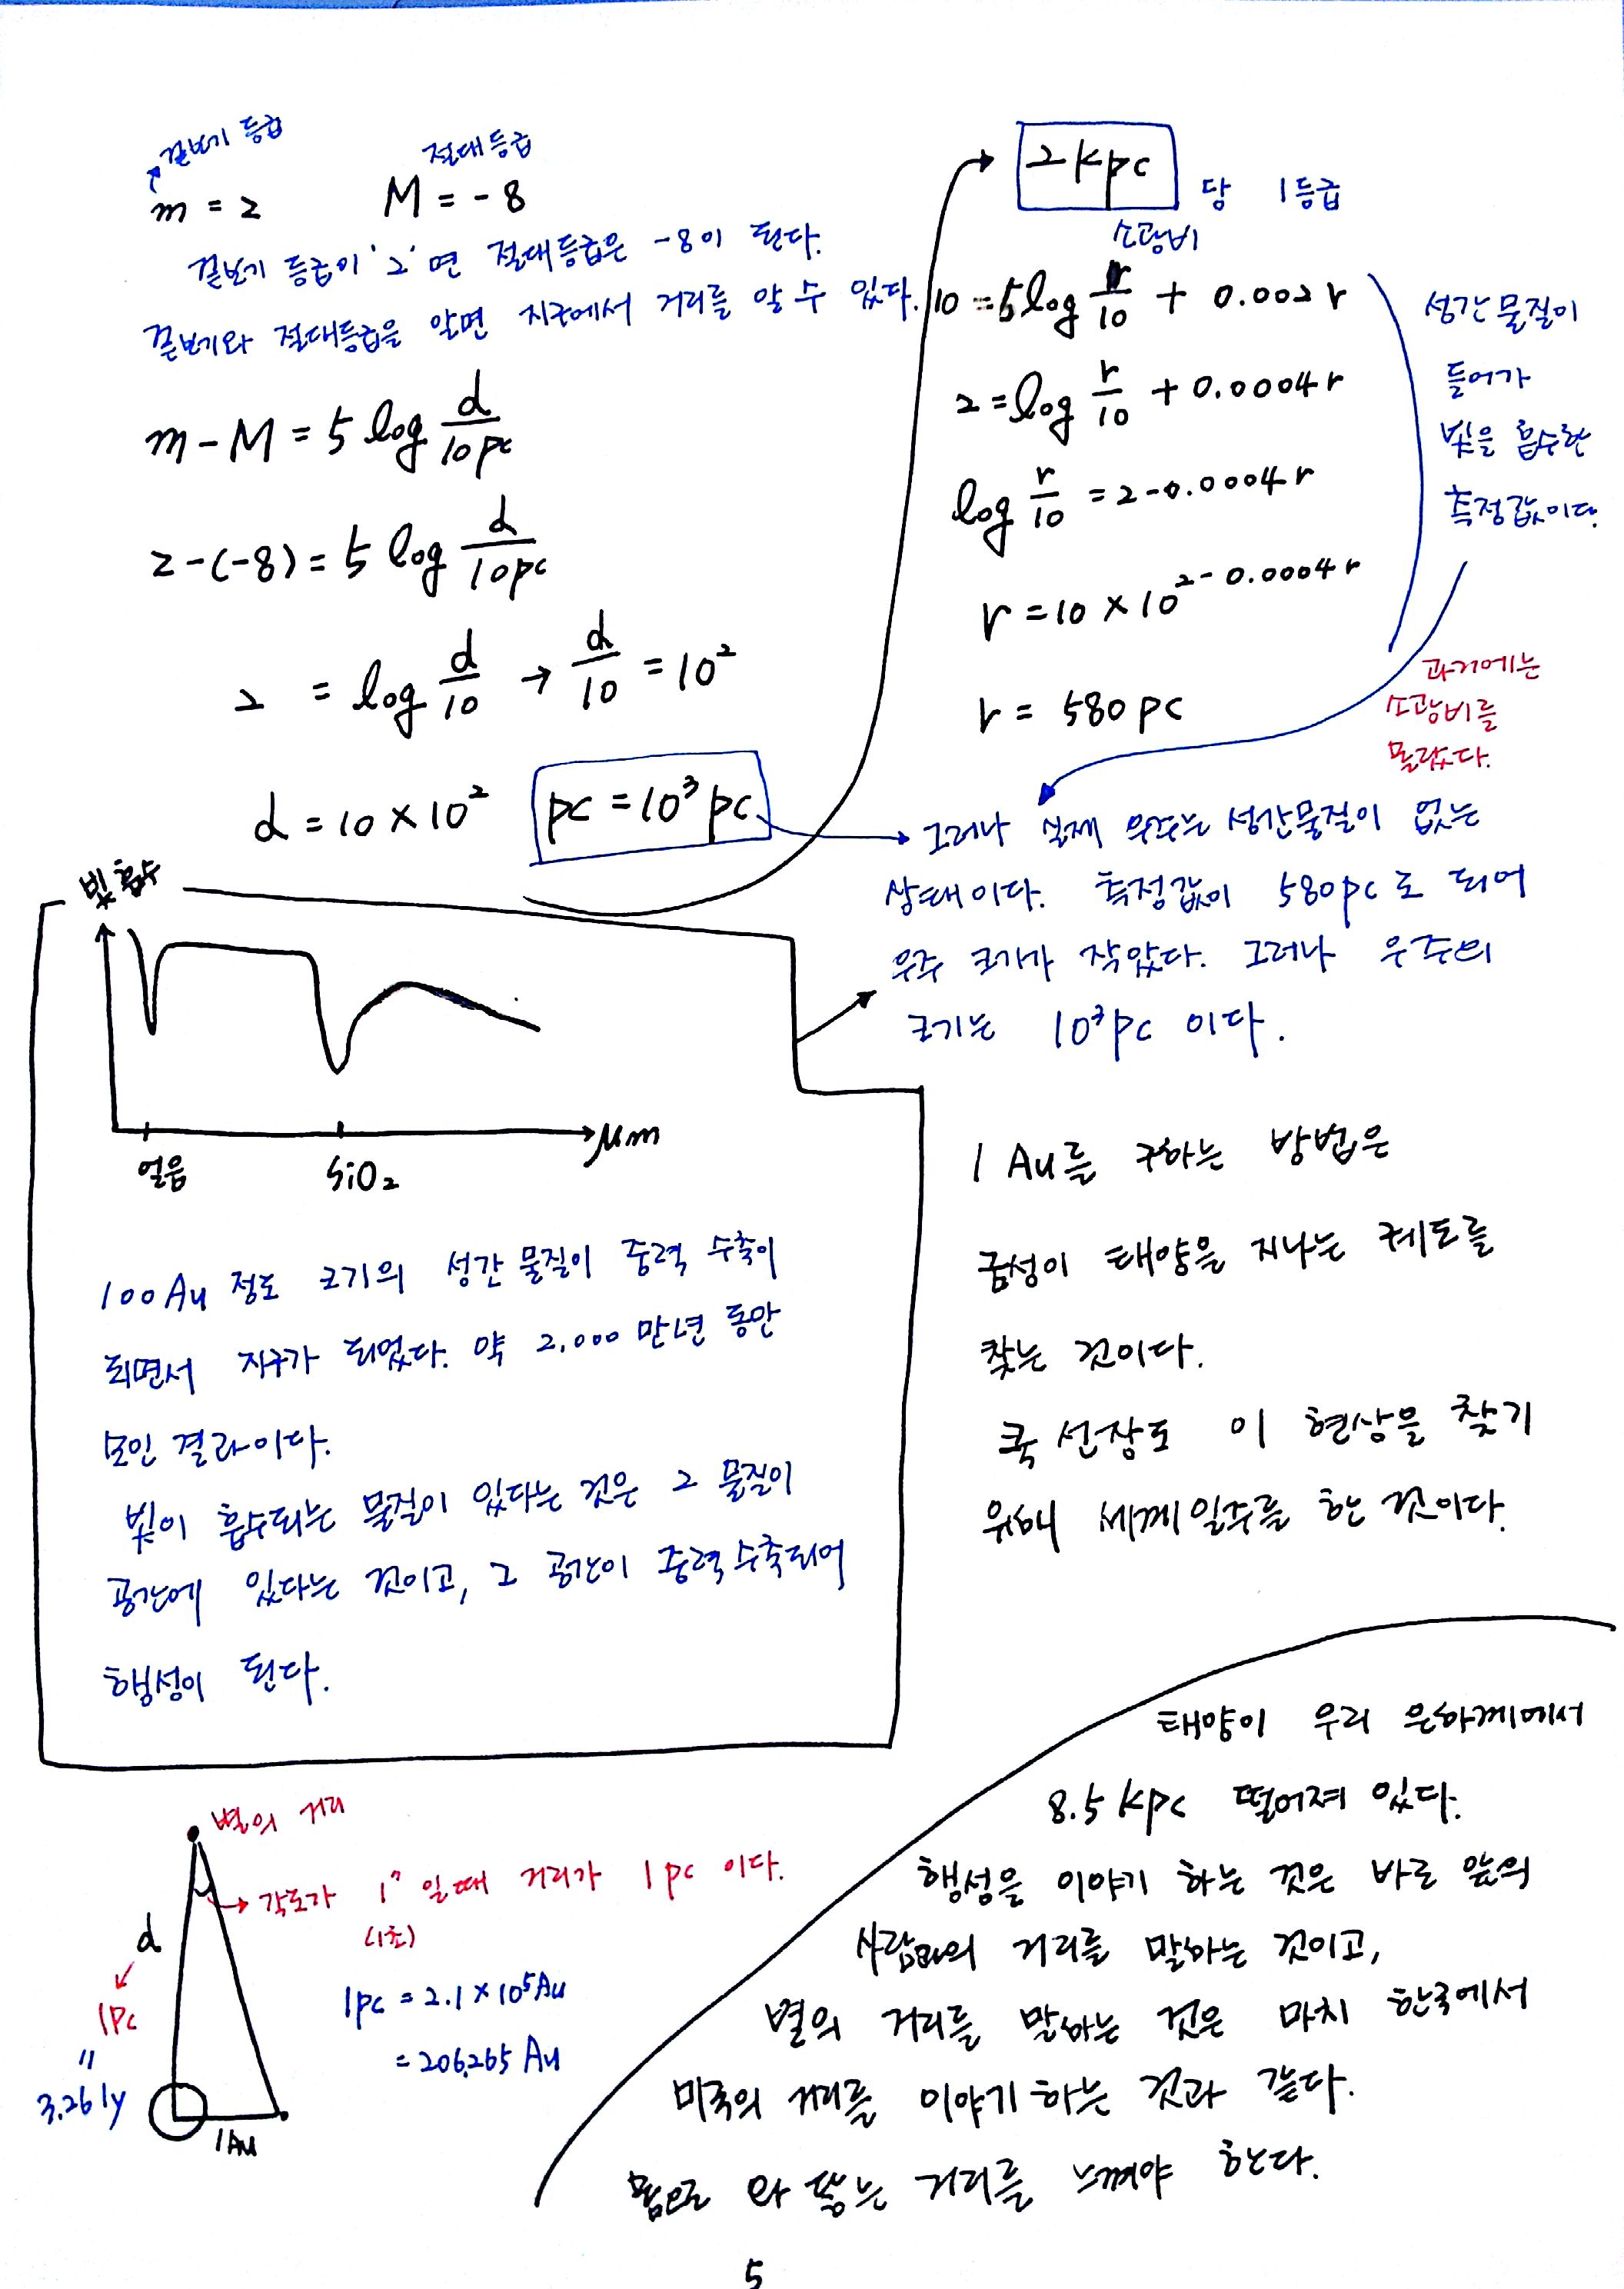 겉보기 등급
절대등급
m = 2
M = -8
겉보기 등급이 '2'면 절대등급은 -8이 된다.
겉보기와 절대등급을 알면 지구에서 거리를 알 수 있다.
m - M = 5 log d/10pc
2-(-8) = 5 log d/10pc
2 = log d/10 → d/10 = 10²
d = 10 × 10² pc = 10³ pc
2kpc 당 1등급
소광비
10 = 5 log r/10 + 0.002 r
2 = log r/10 + 0.0004 r
log r/10 = 2 - 0.0004 r
r = 10 × 10^2-0.0004r
r = 580 pc
성간물질이
들어가
빛을 흡수한
측정값이다.
과거에는
소광비를
몰랐다.
그러나 실제 우주는 성간물질이 없는
상태이다. 측정값이 580pc로 되어
우주 크기가 작았다. 그러나 우주의
크기는 10³pc 이다.
빛흡수
μm
얼음
SiO₂
100Au 정도 크기의 성간물질이 중력 수축이
되면서 지구가 되었다. 약 2,000만년 동안
모인 결과이다.
빛이 흡수되는 물질이 있다는 것은 그 물질이
공간에 있다는 것이고, 그 공간이 중력수축되어
행성이 된다.
1 Au를 구하는 방법은
금성이 태양을 지나는 궤도를
찾는 것이다.
쿡 선장도 이 현상을 찾기
위해 세계일주를 한 것이다.
별의 거리
각도가 1" 일때 거리가 1pc 이다.
(1초)
d
1Pc
=
3.26 ly
1Au
1pc = 2.1 × 10⁵Au
= 206,265 Au
태양이 우리 은하계에서
8.5 kpc 떨어져 있다.
행성을 이야기 하는 것은 바로 앞의
사람과의 거리를 말하는 것이고,
별의 거리를 말하는 것은 마치 한국에서
미국의 거리를 이야기 하는 것과 같다.
몸으로 와 닿는 거리를 느껴야 한다.
5